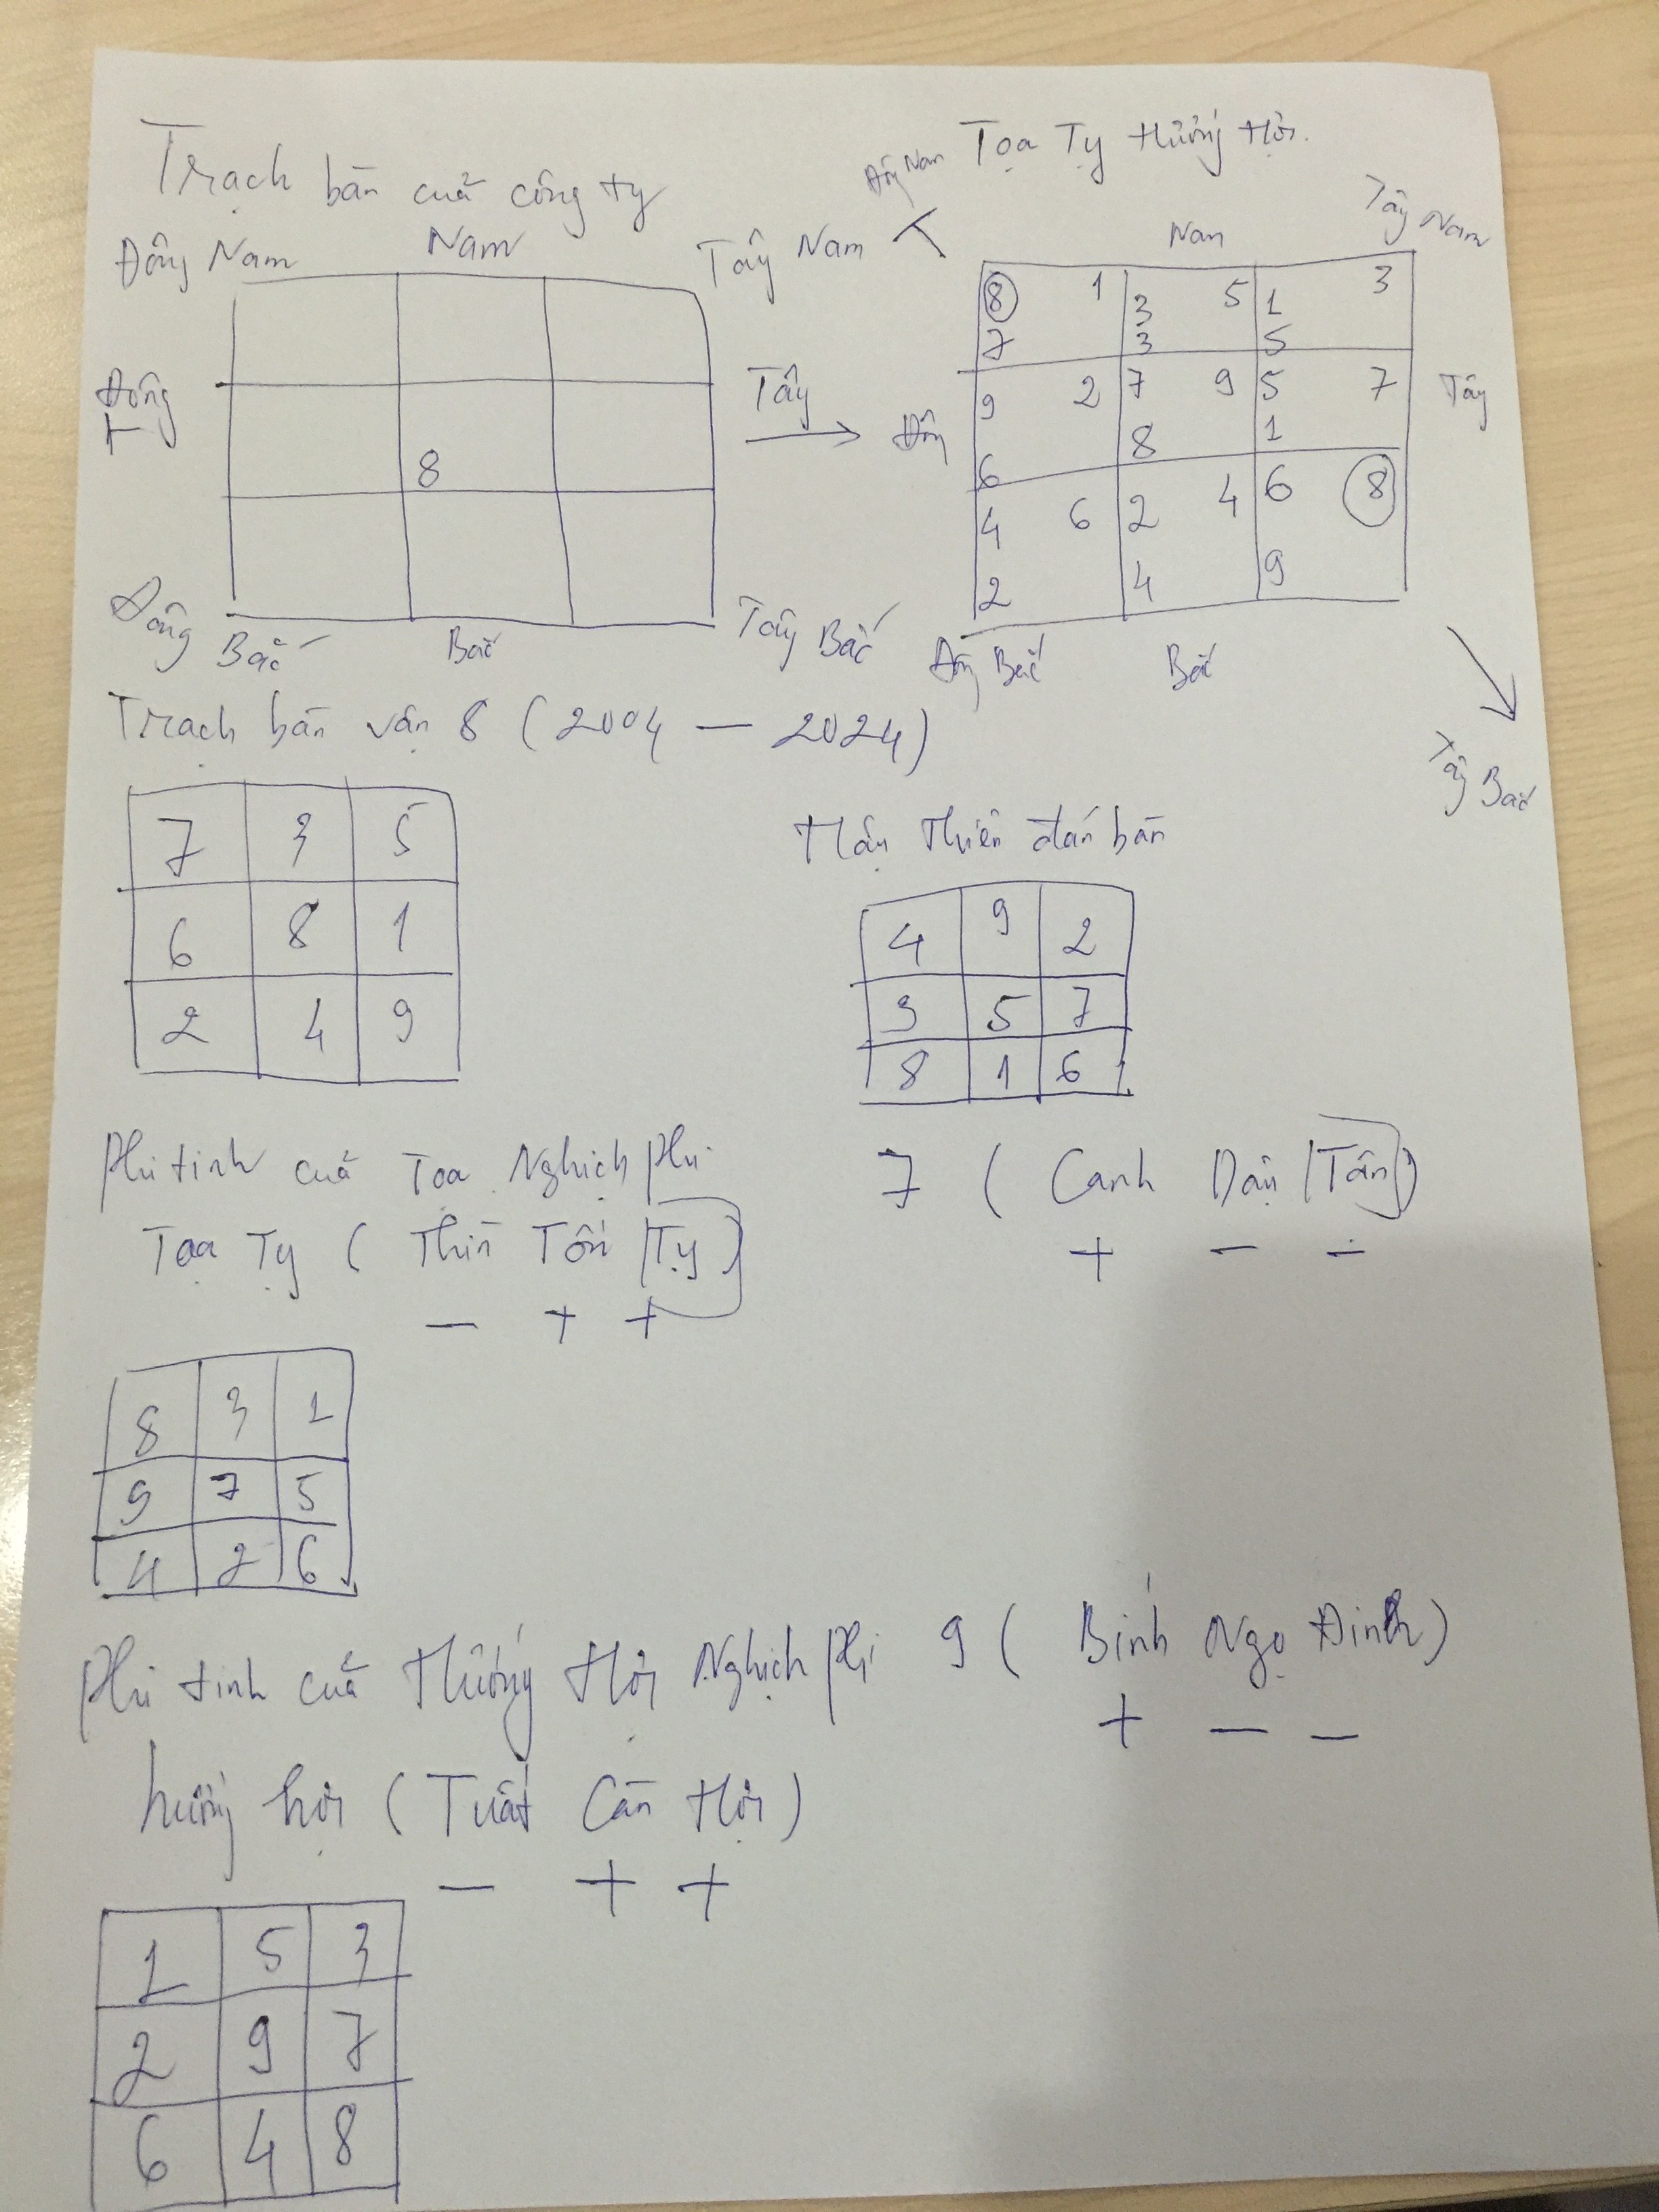 Trạch bàn của công ty
Tọa Tỵ Hướng Hợi.
Đông Nam Nam Tây Nam
Đông Tây
8
Đông Bắc Bắc Tây Bắc
Đông Nam Nam Tây Nam
8 1 3 5 1 3
7 3 5
Đông 9 2 7 9 5 7 Tây
6 8 1
4 6 2 4 6 8
2 4 9
Đông Bắc Bắc Tây Bắc
Trạch bàn vận 8 (2004 — 2024)
7 3 5
6 8 1
2 4 9
Hậu thiên đán bàn
4 9 2
3 5 7
8 1 6
Phi tinh của Tọa. Nghịch phi.
7 ( Canh Dậu Tân )
+ - -
Tọa Tỵ ( Thìn Tốn Tỵ )
- + +
8 3 1
9 7 5
4 2 6
Phi tinh của Hướng Hợi Nghịch phi
9 ( Bính Ngọ Đinh )
+ - -
hướng hợi ( Tuất Càn Hợi )
- + +
1 5 3
2 9 7
6 4 8